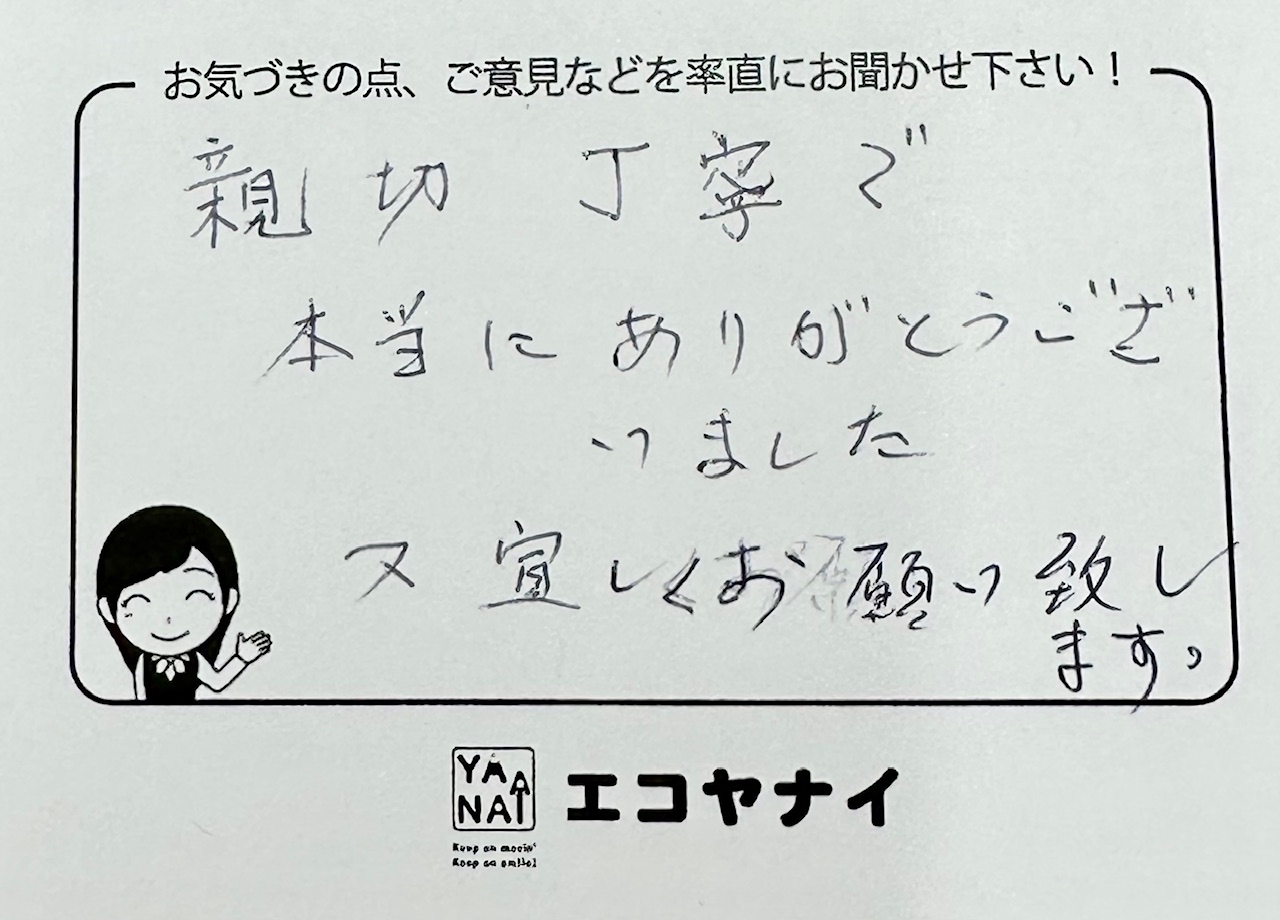 お気づきの点、ご意見などを率直にお聞かせ下さい！
親切 丁寧で
本当に ありがとうござ
いました
又 宜しくお願い致し
ます。
YANAI
エコヤナイ
Keep on movin'
Keep on smile!